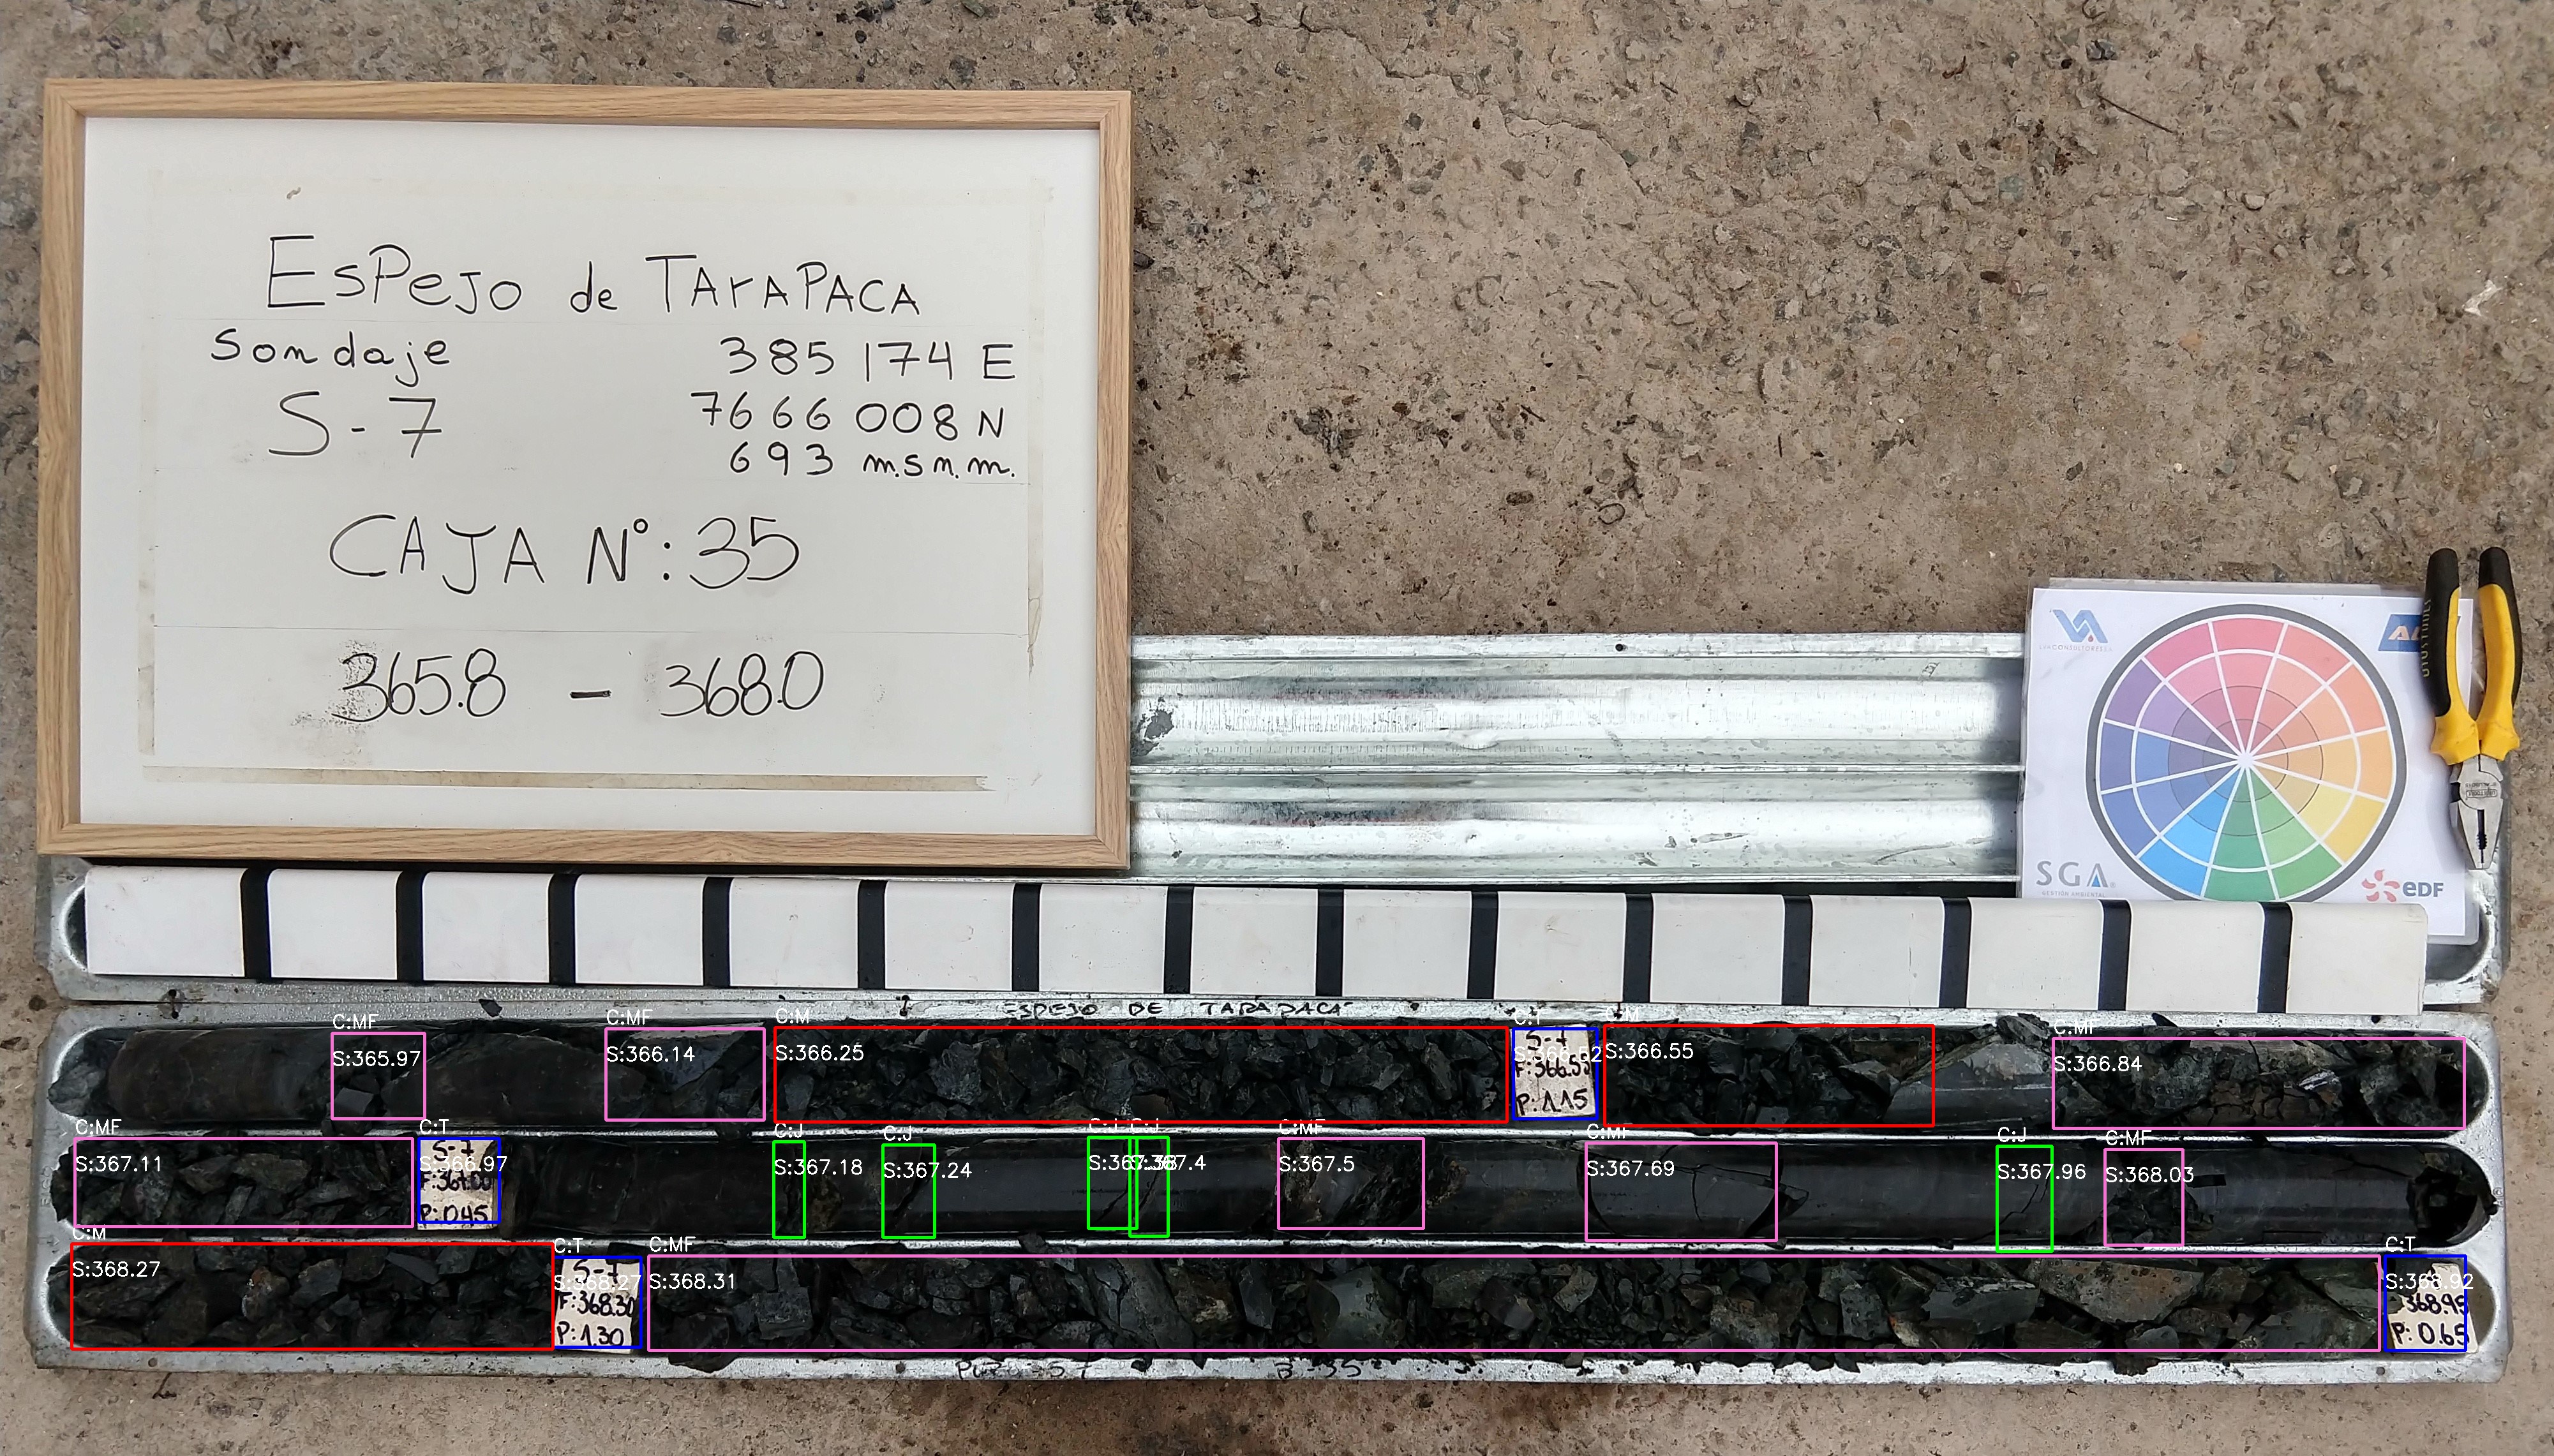 ESPEJO de TARAPACA
Sondaje
385 174 E
S-7
7666 008 N
693 m.s.n.m.
CAJA N°: 35
365.8 - 368.0
SGA
eDF
ESPEJO DE TARAPACA
C:MF
S:365.97
C:MF
S:366.14
C:M
S:366.25
S-7
F:366.55
P:1.15
C:M
S:366.55
C:MF
S:366.84
C:MF
S:367.11
C:T
S:366.97
S-7
F:367.00
P:0.45
C:J
S:367.18
C:J
S:367.24
C:J
S:367.38
C:J
S:367.4
C:MF
S:367.5
C:MF
S:367.69
C:J
S:367.96
C:MF
S:368.03
C:M
S:368.27
C:T
S:368.27
S-7
F:368.30
P:1.30
C:MF
S:368.31
C:T
S:368.92
368.95
P:0.65